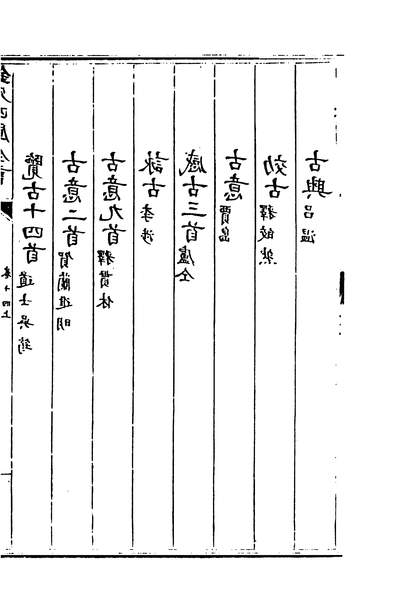 欽定四庫全書
卷十四上
覽古十四首 道士吳筠
古意二首 賀蘭進明
古意九首 釋貫休
詠古 李涉
感古三首 盧仝
古意 賈島
効古 釋皎然
古興 呂溫